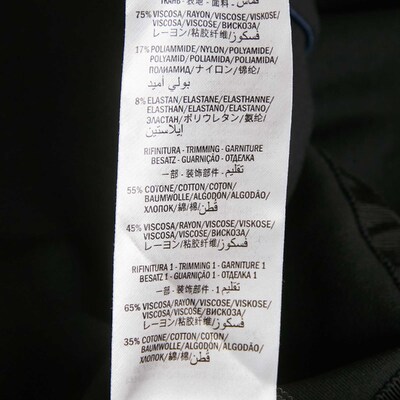 ТКАНЬ - 表地 - 面料 - قماش
75% VISCOSA/RAYON/VISCOSE/VISKOSE/
VISCOSA/VISCOSE/ВИСКОЗА/
レーヨン/粘胶纤维/فسكوز
17% POLIAMMIDE/NYLON/POLYAMIDE/
POLYAMID/POLIAMIDA/POLIAMIDA/
ПОЛИАМИД/ナイロン/锦纶/
بولي أميد
8% ELASTAN/ELASTANE/ELASTHANNE/
ELASTHAN/ELASTANO/ELASTANO/
ЭЛАСТАН/ポリウレタン/氨纶/
إيلاستين
RIFINITURA - TRIMMING - GARNITURE
BESATZ - GUARNIÇÃO - ОТДЕЛКА
一部 - 装饰部件 - تقليم
55% COTONE/COTTON/COTON/
BAUMWOLLE/ALGODÓN/ALGODÃO/
ХЛОПОК/綿/棉/قطن
45% VISCOSA/RAYON/VISCOSE/VISKOSE/
VISCOSA/VISCOSE/ВИСКОЗА/
レーヨン/粘胶纤维/فسكوز
RIFINITURA 1 - TRIMMING 1 - GARNITURE 1
BESATZ 1 - GUARNIÇÃO 1 - ОТДЕЛКА 1
一部 - 装饰部件 1 - تقليم 1
65% VISCOSA/RAYON/VISCOSE/VISKOSE/
VISCOSA/VISCOSE/ВИСКОЗА/
レーヨン/粘胶纤维/فسكوز
35% COTONE/COTTON/COTON/
BAUMWOLLE/ALGODÓN/ALGODÃO/
ХЛОПОК/綿/棉/قطن